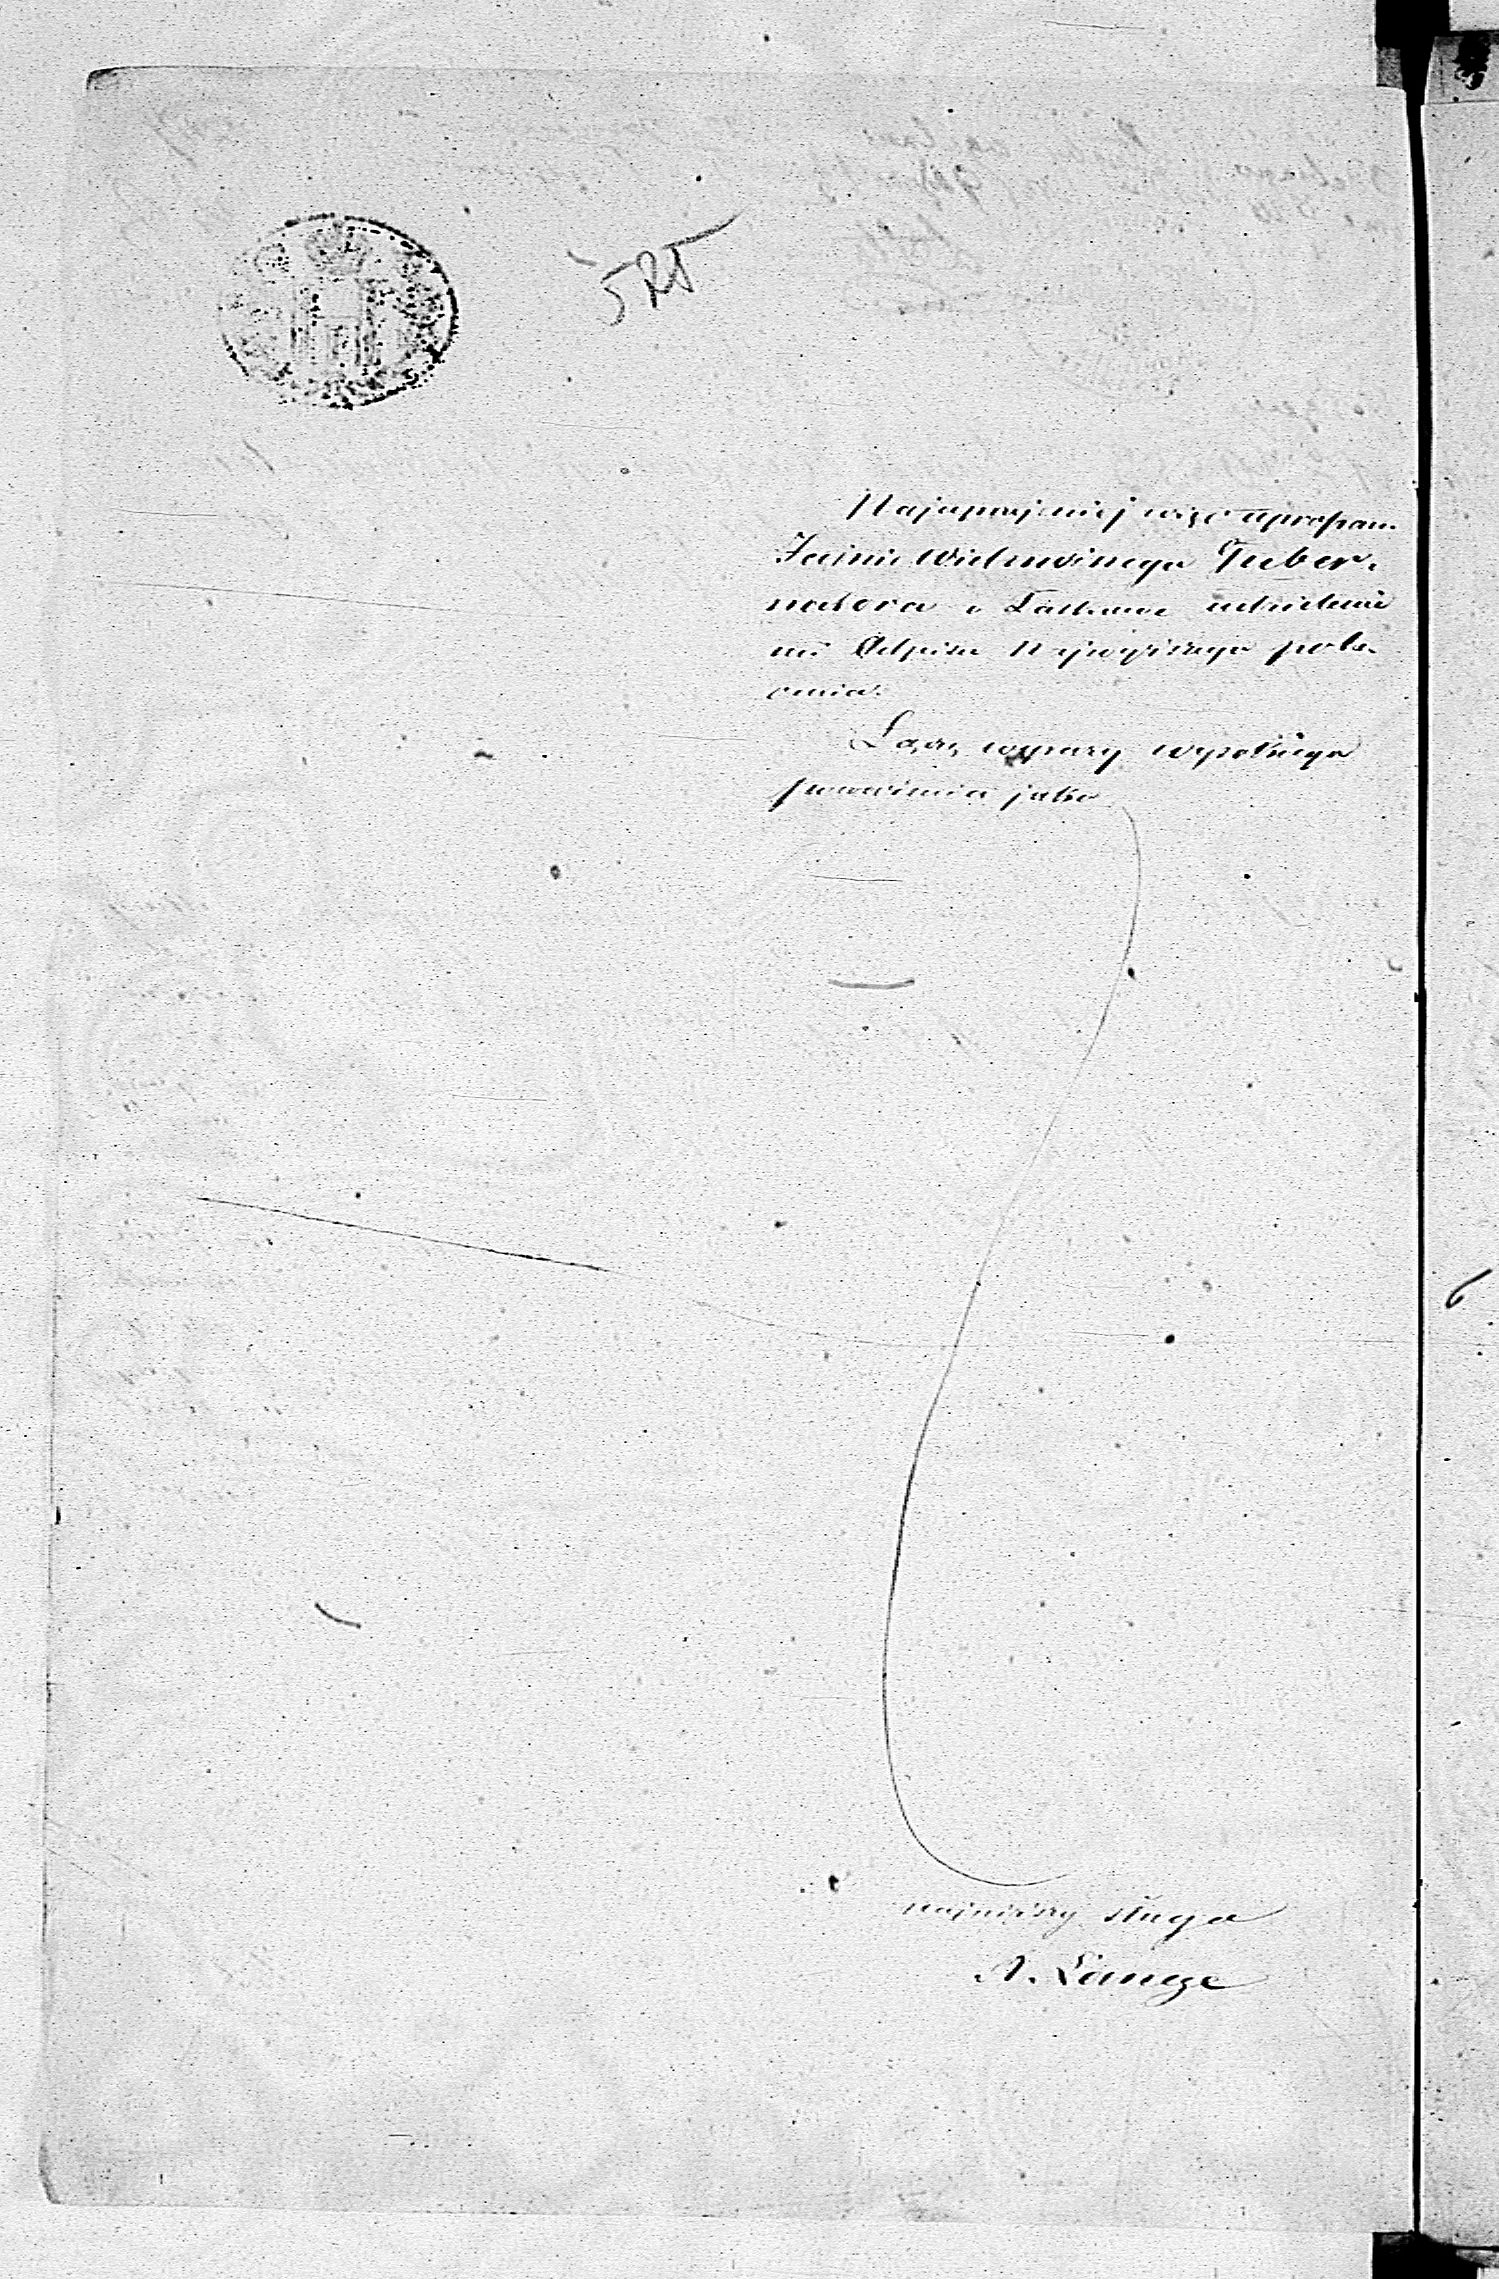 525
Najuprzejmiej więc upraszam
Jaśnie Wielmożnego Guber-
natora o łaskawe udzielenie
mi Odpisu Najwyższego pole-
cenia.
Łączę wyrazy wysokiego
poważania jako
najniższy sługa
A. Lange